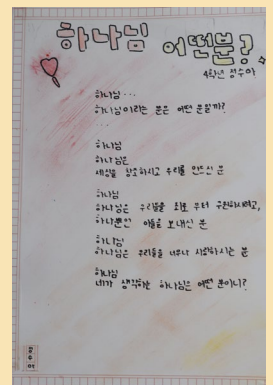 하나님 어떤분?
4학년 정수아
하나님...
하나님이라는 분은 어떤 분일까?
하나님
하나님은
세상을 창조하시고 우리를 만드신 분
하나님
하나님은 우리들을 죄로 부터 구원하시려고,
하나뿐인 아들을 보내신 분
하나님
하나님은 우리들을 너무나 사랑하시는 분
하나님
네가 생각하는 하나님은 어떤 분이니?
정수아